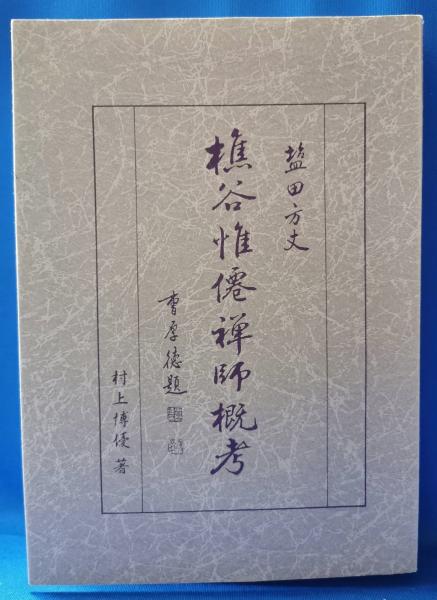 塩田方丈
樵谷惟僊禅師概考
曹厚德題
村上博優著